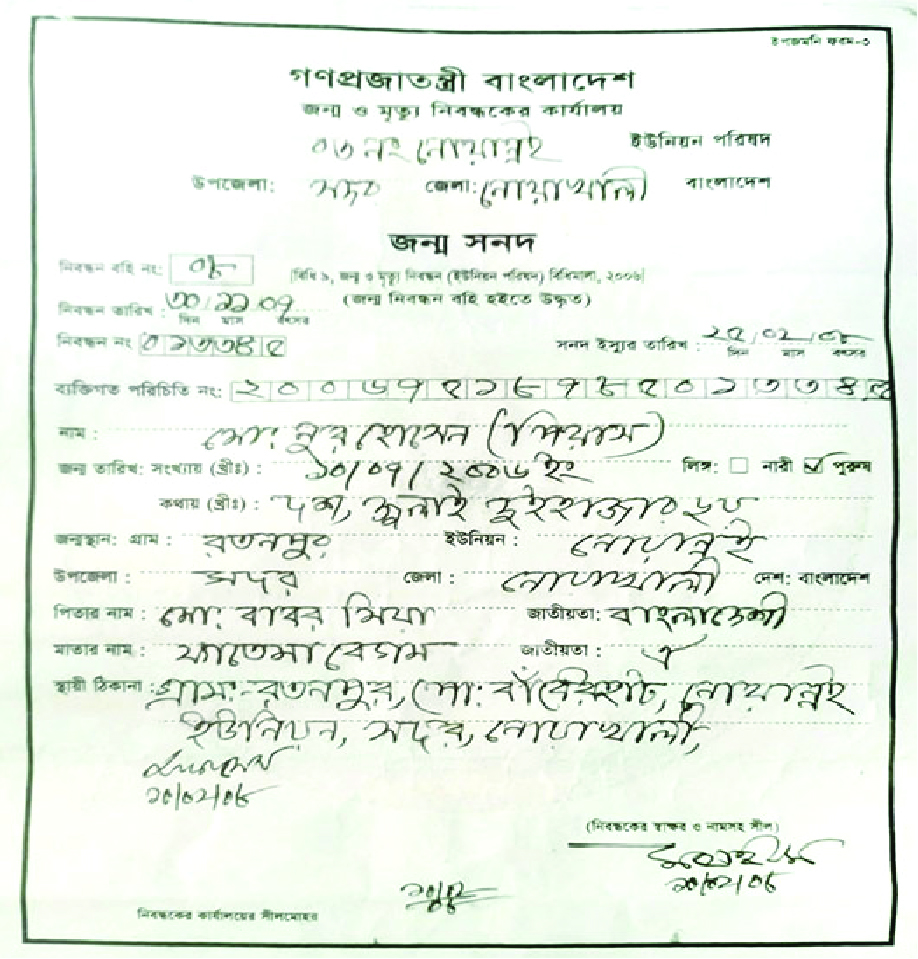 গণপ্রজাতন্ত্রী বাংলাদেশ
জন্ম ও মৃত্যু নিবন্ধকের কার্যালয়
০৬ নং নোয়ান্নই ইউনিয়ন পরিষদ
উপজেলা: সদর জেলা: নোয়াখালী বাংলাদেশ
জন্ম সনদ
নিবন্ধন বহি নং: ০৮ [বিধি ৯, জন্ম ও মৃত্যু নিবন্ধন (ইউনিয়ন পরিষদ) বিধিমালা, ২০০৬]
(জন্ম নিবন্ধন বহি হইতে উদ্ধৃত)
নিবন্ধন তারিখ : ৩০/১১/০৭
দিন মাস বৎসর
নিবন্ধন নং ০১৩৩৪৫ সনদ ইস্যুর তারিখ :
দিন মাস বৎসর
ব্যক্তিগত পরিচিতি নং:
নাম : মো: নুর হোসেন (পিয়াস)
জন্ম তারিখ: সংখ্যায় (খ্রীঃ) : ১০/০৭/২০০৬ ইং লিঙ্গ: নারী পুরুষ
কথায় (খ্রীঃ) : দশ, জুলাই দুইহাজার ছয়
জন্মস্থান: গ্রাম : রতনপুর ইউনিয়ন : নোয়ান্নই
উপজেলা : সদর জেলা : নোয়াখালী দেশ: বাংলাদেশ
পিতার নাম : মো: বাবর মিয়া জাতীয়তা: বাংলাদেশী
মাতার নাম : ফাতেমা বেগম জাতীয়তা : ঐ
স্থায়ী ঠিকানা : গ্রাম:-রতনপুর, পো: বাঁধেরহাট, নোয়ান্নই
ইউনিয়ন, সদর, নোয়াখালী,
১০/০২/০৮
(নিবন্ধকের স্বাক্ষর ও নামসহ সীল)
১০/০২/০৮
নিবন্ধকের কার্যালয়ের সীলমোহর